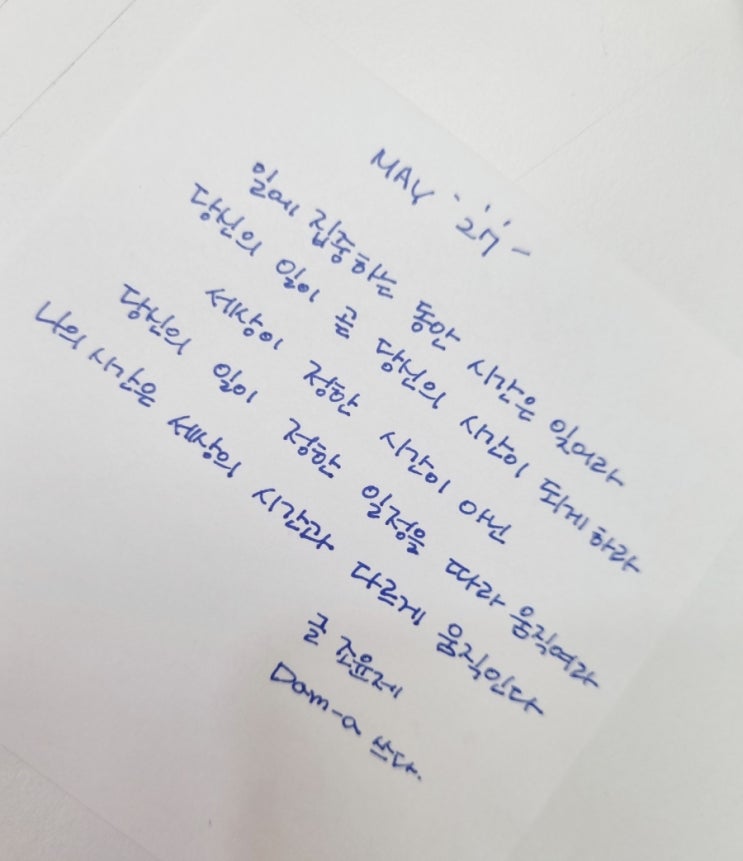 MAY
27-
일에 집중하는 동안 시간은 잊어라
당신의 일이 곧 당신의 시간이 되게 하라
세상이 정한 시간이 아닌
당신의 일이 정한 일정을 따라 움직여라
나의 시간은 세상의 시간과 다르게 움직인다
글 조윤제
Dam-a 쓰다.